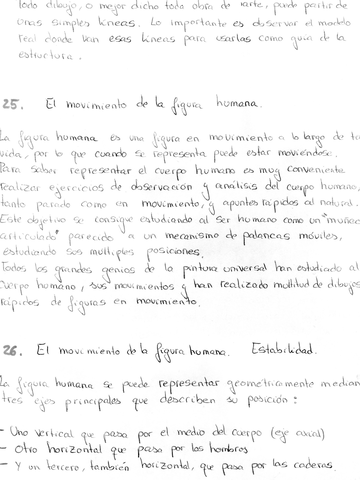 Todo dibujo, o mejor dicho toda obra de arte, puede partir de
unas simples líneas. Lo importante es observar el modelo
real donde van esas líneas para usarlas como guía de la
estructura.
25. El movimiento de la figura humana.
La figura humana es una figura en movimiento a lo largo de to
vida, por lo que cuando se representa puede estar moviéndose.
Para saber representar el cuerpo humano es muy conveniente
realizar ejercicios de observación y análisis del cuerpo humano,
tanto parado como en movimiento, y apuntes rápidos al natural.
Este objetivo se consigue estudiando al ser humano como un "muñeco
articulado" parecido a un mecanismo de palancas móviles,
estudiando sus múltiples posiciones.
Todos los grandes genios de la pintura universal han estudiado al
cuerpo humano, sus movimientos y han realizado multitud de dibujos
rápidos de figuras en movimiento.
26. El movimiento de la figura humana. Estabilidad.
La figura humana se puede representar geométricamente median
tres ejes principales que describen su posición:
- Uno vertical que pasa por el medio del cuerpo (eje axial)
- Otro horizontal que pasa por los hombros
- Y un tercero, también horizontal, que pasa por las caderas.